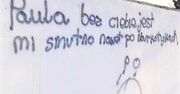 Paula bez ciebie jest
mi smutno nawet po narkotykach